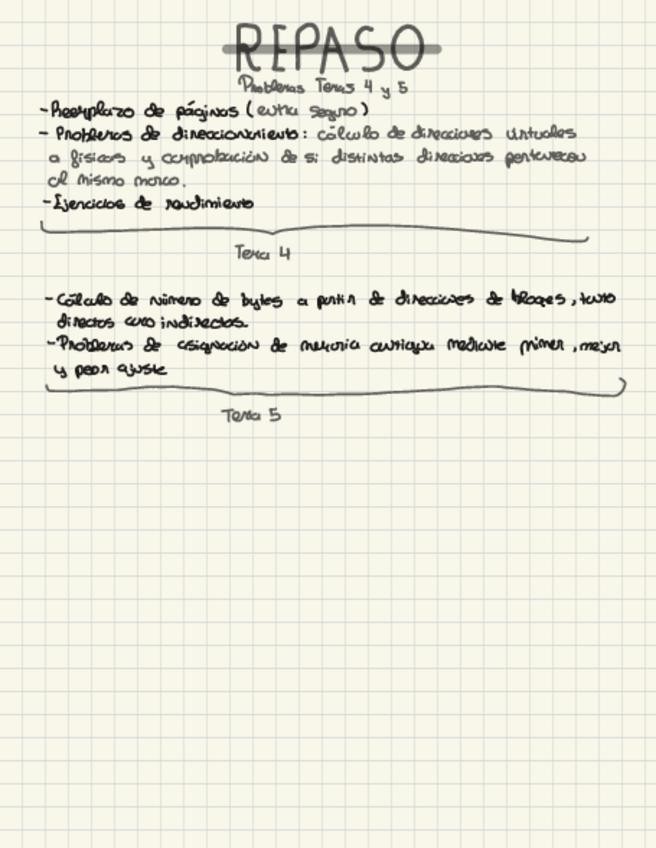 REPASO
Problemas Temas 4 y 5
-Reemplazo de páginas (entra seguro)
- Problemas de direccionamiento: cálculo de direcciones virtuales
a físicas y comprobación de si distintas direcciones pertenecen
al mismo marco.
-Ejercicios de rendimiento
Tema 4
-Cálculo de número de bytes a partir de direcciones de bloques, tanto
directos como indirectos.
-Problemas de asignación de memoria contigua mediante primer, mejor
y peor ajuste
Tema 5